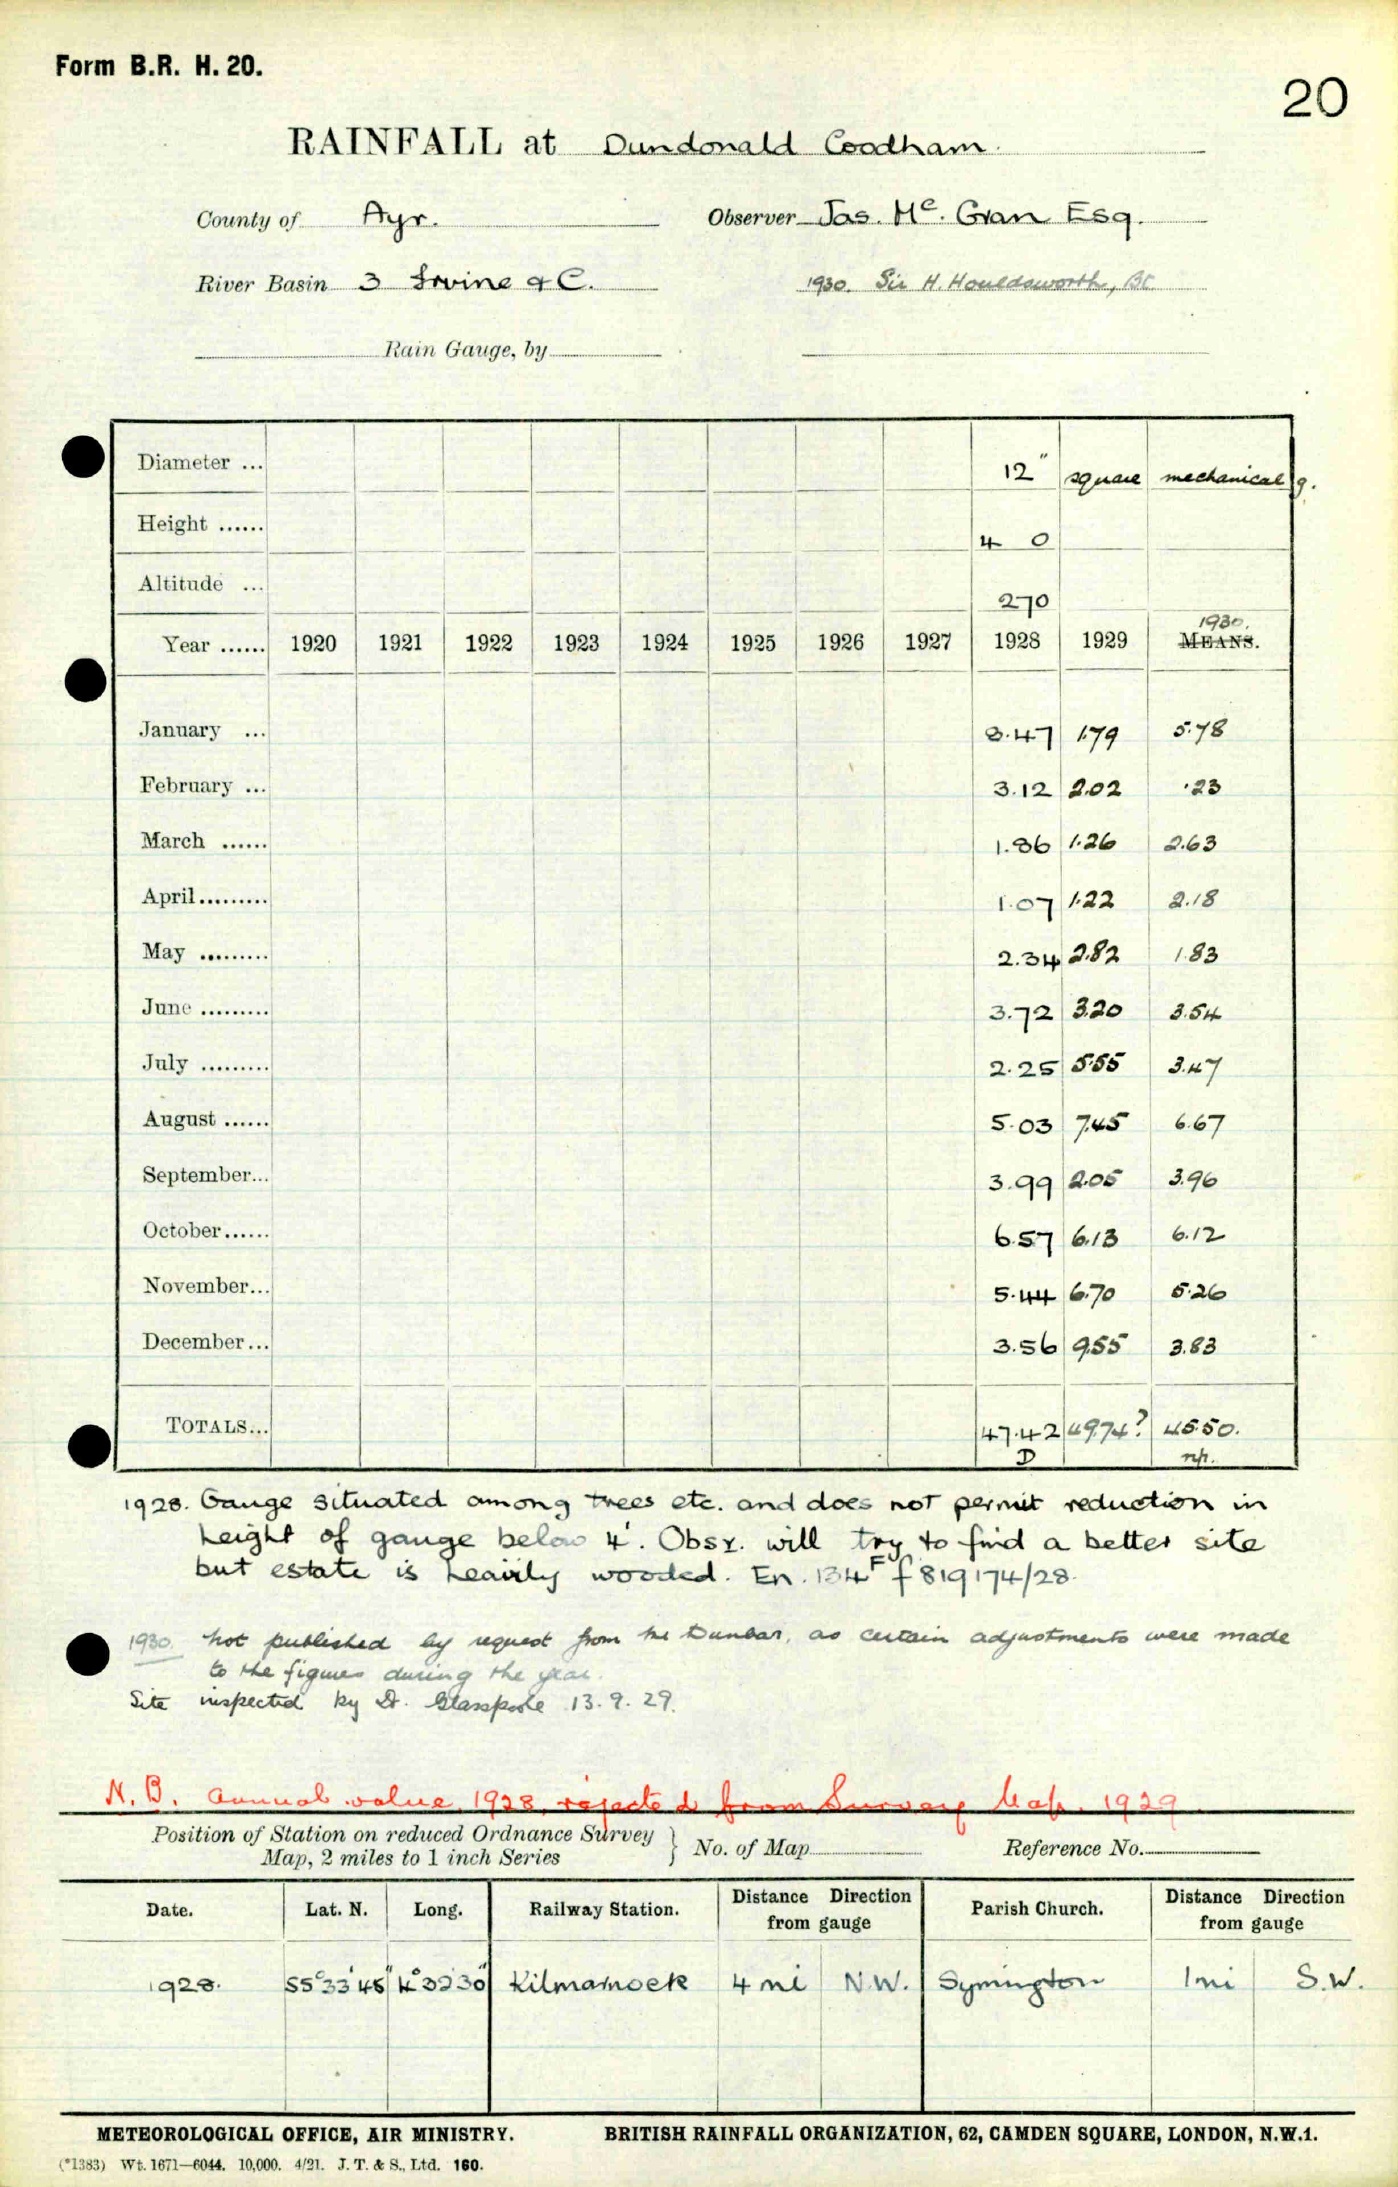 Form B.R. H. 20.
20
RAINFALL at Dundonald Coodham.
County of Ayr. Observer Jas. Mc. Gran Esq.
River Basin 3 Irvine & C. 1930. Sir H. Houldsworth, Bt.
Rain Gauge, by
Diameter ... 12" square mechanical g.
Height ...... 4 0
Altitude ... 270
1930.
Year ...... 1920 1921 1922 1923 1924 1925 1926 1927 1928 1929 MEANS.
January ... 8.47 1.79 5.78
February ... 3.12 2.02 .23
March ...... 1.86 1.26 2.63
April......... 1.07 1.22 2.18
May ......... 2.34 2.82 1.83
June ......... 3.72 3.20 3.54
July ......... 2.25 5.55 3.47
August ...... 5.03 7.45 6.67
September... 3.99 2.05 3.96
October...... 6.57 6.13 6.12
November... 5.44 6.70 5.26
December... 3.56 9.55 3.83
TOTALS... 47.42 49.74? 45.50.
D np.
1928. Gauge situated among trees etc. and does not permit reduction in
height of gauge below 4'. Obsr. will try to find a better site
but estate is heavily wooded. En. 134F f 819174/28.
1930. Not published by request from Mr Dunbar, as certain adjustments were made
to the figures during the year.
Site inspected by Dr. Glasspoole 13.9.29.
N.B. Annual value 1928 rejected from Survey Map. 1929
Position of Station on reduced Ordnance Survey
Map, 2 miles to 1 inch Series } No. of Map Reference No.
Date. Lat. N. Long. Railway Station. Distance Direction from gauge Parish Church. Distance Direction from gauge
1928. 55°33'45" 4°32'30" Kilmarnock 4 mi N.W. Symington 1 mi S.W.
METEOROLOGICAL OFFICE, AIR MINISTRY. BRITISH RAINFALL ORGANIZATION, 62, CAMDEN SQUARE, LONDON, N.W.1.
(*1383) Wt. 1671—6044. 10,000. 4/21. J. T. & S., Ltd. 160.